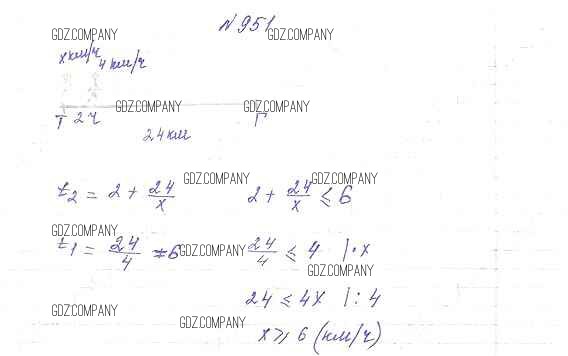 N951
GDZ.COMPANY GDZ.COMPANY
x км/ч
4 км/ч
GDZ.COMPANY GDZ.COMPANY
Т 2ч Г
24км
GDZ.COMPANY GDZ.COMPANY
t2 = 2 + 24/x 2 + 24/x ≤ 6
GDZ.COMPANY
t1 = 24/4 = 6 GDZ.COMPANY 24/4 ≤ 4 |·x
GDZ.COMPANY
24 ≤ 4x |: 4
GDZ.COMPANY GDZ.COMPANY
x ≥ 6 (км/ч)